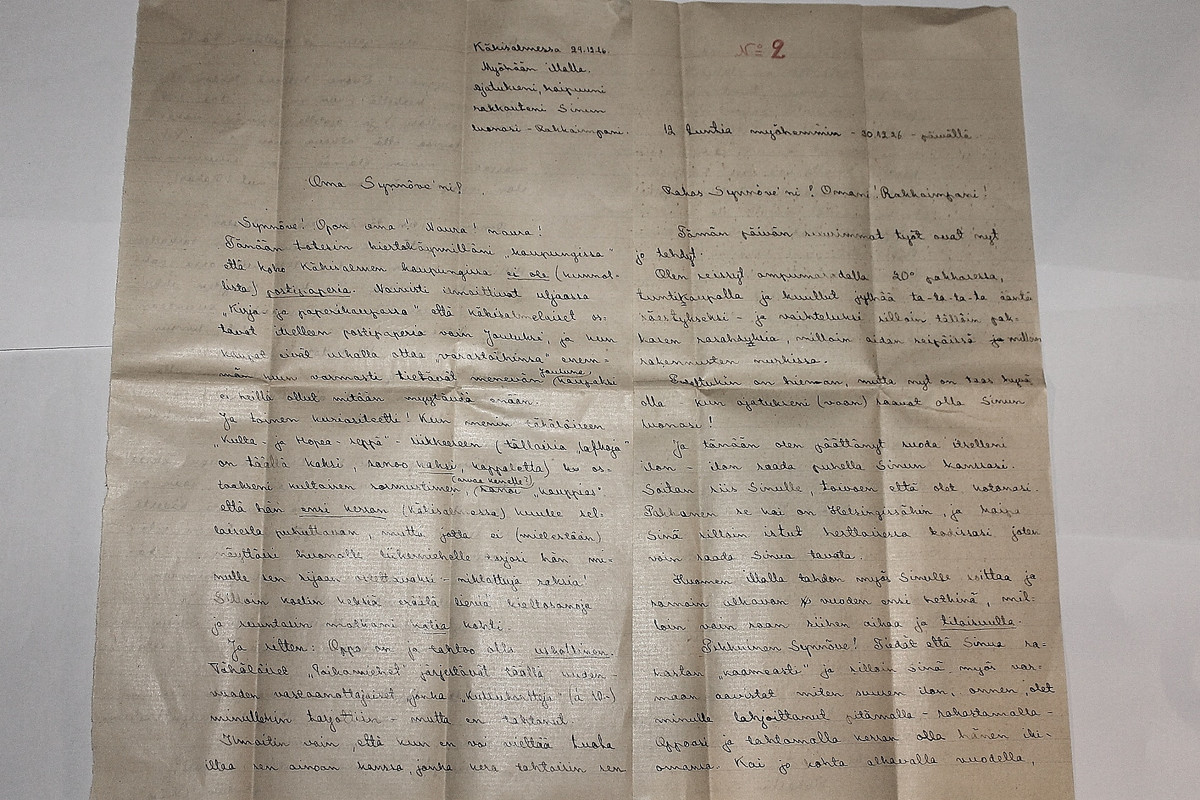 Käkisalmessa 29.12.26.
Myöhään illalla.
ajatukeni, kaipuuni
rakkauteni Sinun
luonasi - Rakkaimpani.
Oma Synnöve'ni!
Synnöve! Opon oma! Naura! naura!
Tänään totesin kiertokäynnilläni „kaupungissa"
että koko Käkisalmen kaupungissa ei ole (kunnol-
lista) postipaperia. Neuvosti ilmoittivat uljaassa
„Kirja- ja paperikaupassa" että käkisalmelaiset os-
tavat itselleen postipaperia vain Jouluksi, ja kun
kaupat eivät uskalla ottaa „varastoihinsa" enem-
män kuin varmasti tietävät menevän Jouluna (kaupaksi
ei heillä ollut mitään myytävää enään.
Ja toinen kuriositeetti! Kun menin täkäläiseen
„Kulta- ja Hopea-seppä"-liikkeeseen (tällaisia „laffkoja"
on täällä kaksi, sanoo kaksi, kappaletta) os-
taakseni kultaisen sormustimen, (arvaa kenelle?) sanoi „kauppias"
että hän ensi kerran (Käkisalmessa) kuulee sel-
laisesta puhuttavan, mutta jotta ei (mielestään)
näyttäisi huonolta liikemieheltä tarjosi hän mi-
nulle sen sijaan ostettavaksi - mikkottuja saksia!
Silloin koetin keksiä eräitä lieviä kieltosanoja
ja suuntasin matkani kotia kohti.
Ja sitten: Oppo on ja tahtoo olla uskollinen.
Täkäläiset „Poikamiehet" järjestävät täällä uuden-
vuoden vastaanottajaiset, jonka „Kutsukortteja" (à 10:-)
minullekin tarjottiin - mutta en tahtonut.
Ilmoitin vain, että kun en voi viettää tuota
iltaa sen ainoan kanssa, jonka kera tahtoisin sen
No 2
12 tuntia myöhemmin - 30.12.26 - päivällä.
Rakas Synnöve'ni! Omani! Rakkaimpani!
Tämän päivän suurimmat työt ovat nyt
jo tehdyt.
Olen seissyt ampumaradalla 20° pakkasessa,
tuntikaupalla ja kuullut jythää ta-ta-ta-ta ääntä
säestykseksi - ja vaihteluksi silloin tällöin pak-
kasen narahduksia, milloin aidan seipäissä milloin
rakennusten nurkissa.
on hieman, mutta nyt on taas hyvä
olla kun ajatukseni (vaan) saavat olla Sinun
luonasi!
Ja tänään olen päättänyt suoda itselleni
ilon - ilon saada puhella Sinun kanssasi.
Soitan siis Sinulle, toivoen että olet kotonasi.
Pakkanen se kai on Helsingissäkin, ja
Sinä silloin istut herttaisessa kodissasi joten
voin saada Sinua tavata.
Huomen illalla tahdon myös Sinulle soittaa ja
samoin alkavan vuoden ensi hetkinä, mil-
loin vain saan siihen aihaa ja tilaisuutta.
Pikkuinen Synnöve! Tiedät että Sinua ra-
kastan „kaameasti" ja silloin sinä myös var-
maan aavistat miten suuren ilon, onnen, olet
minulle lahjoittanut pitämällä - rakastamalla -
Oppoasi ja tahtomalla kerran olla hänen iki-
omansa. Kai jo kohta alkavalla vuodella,